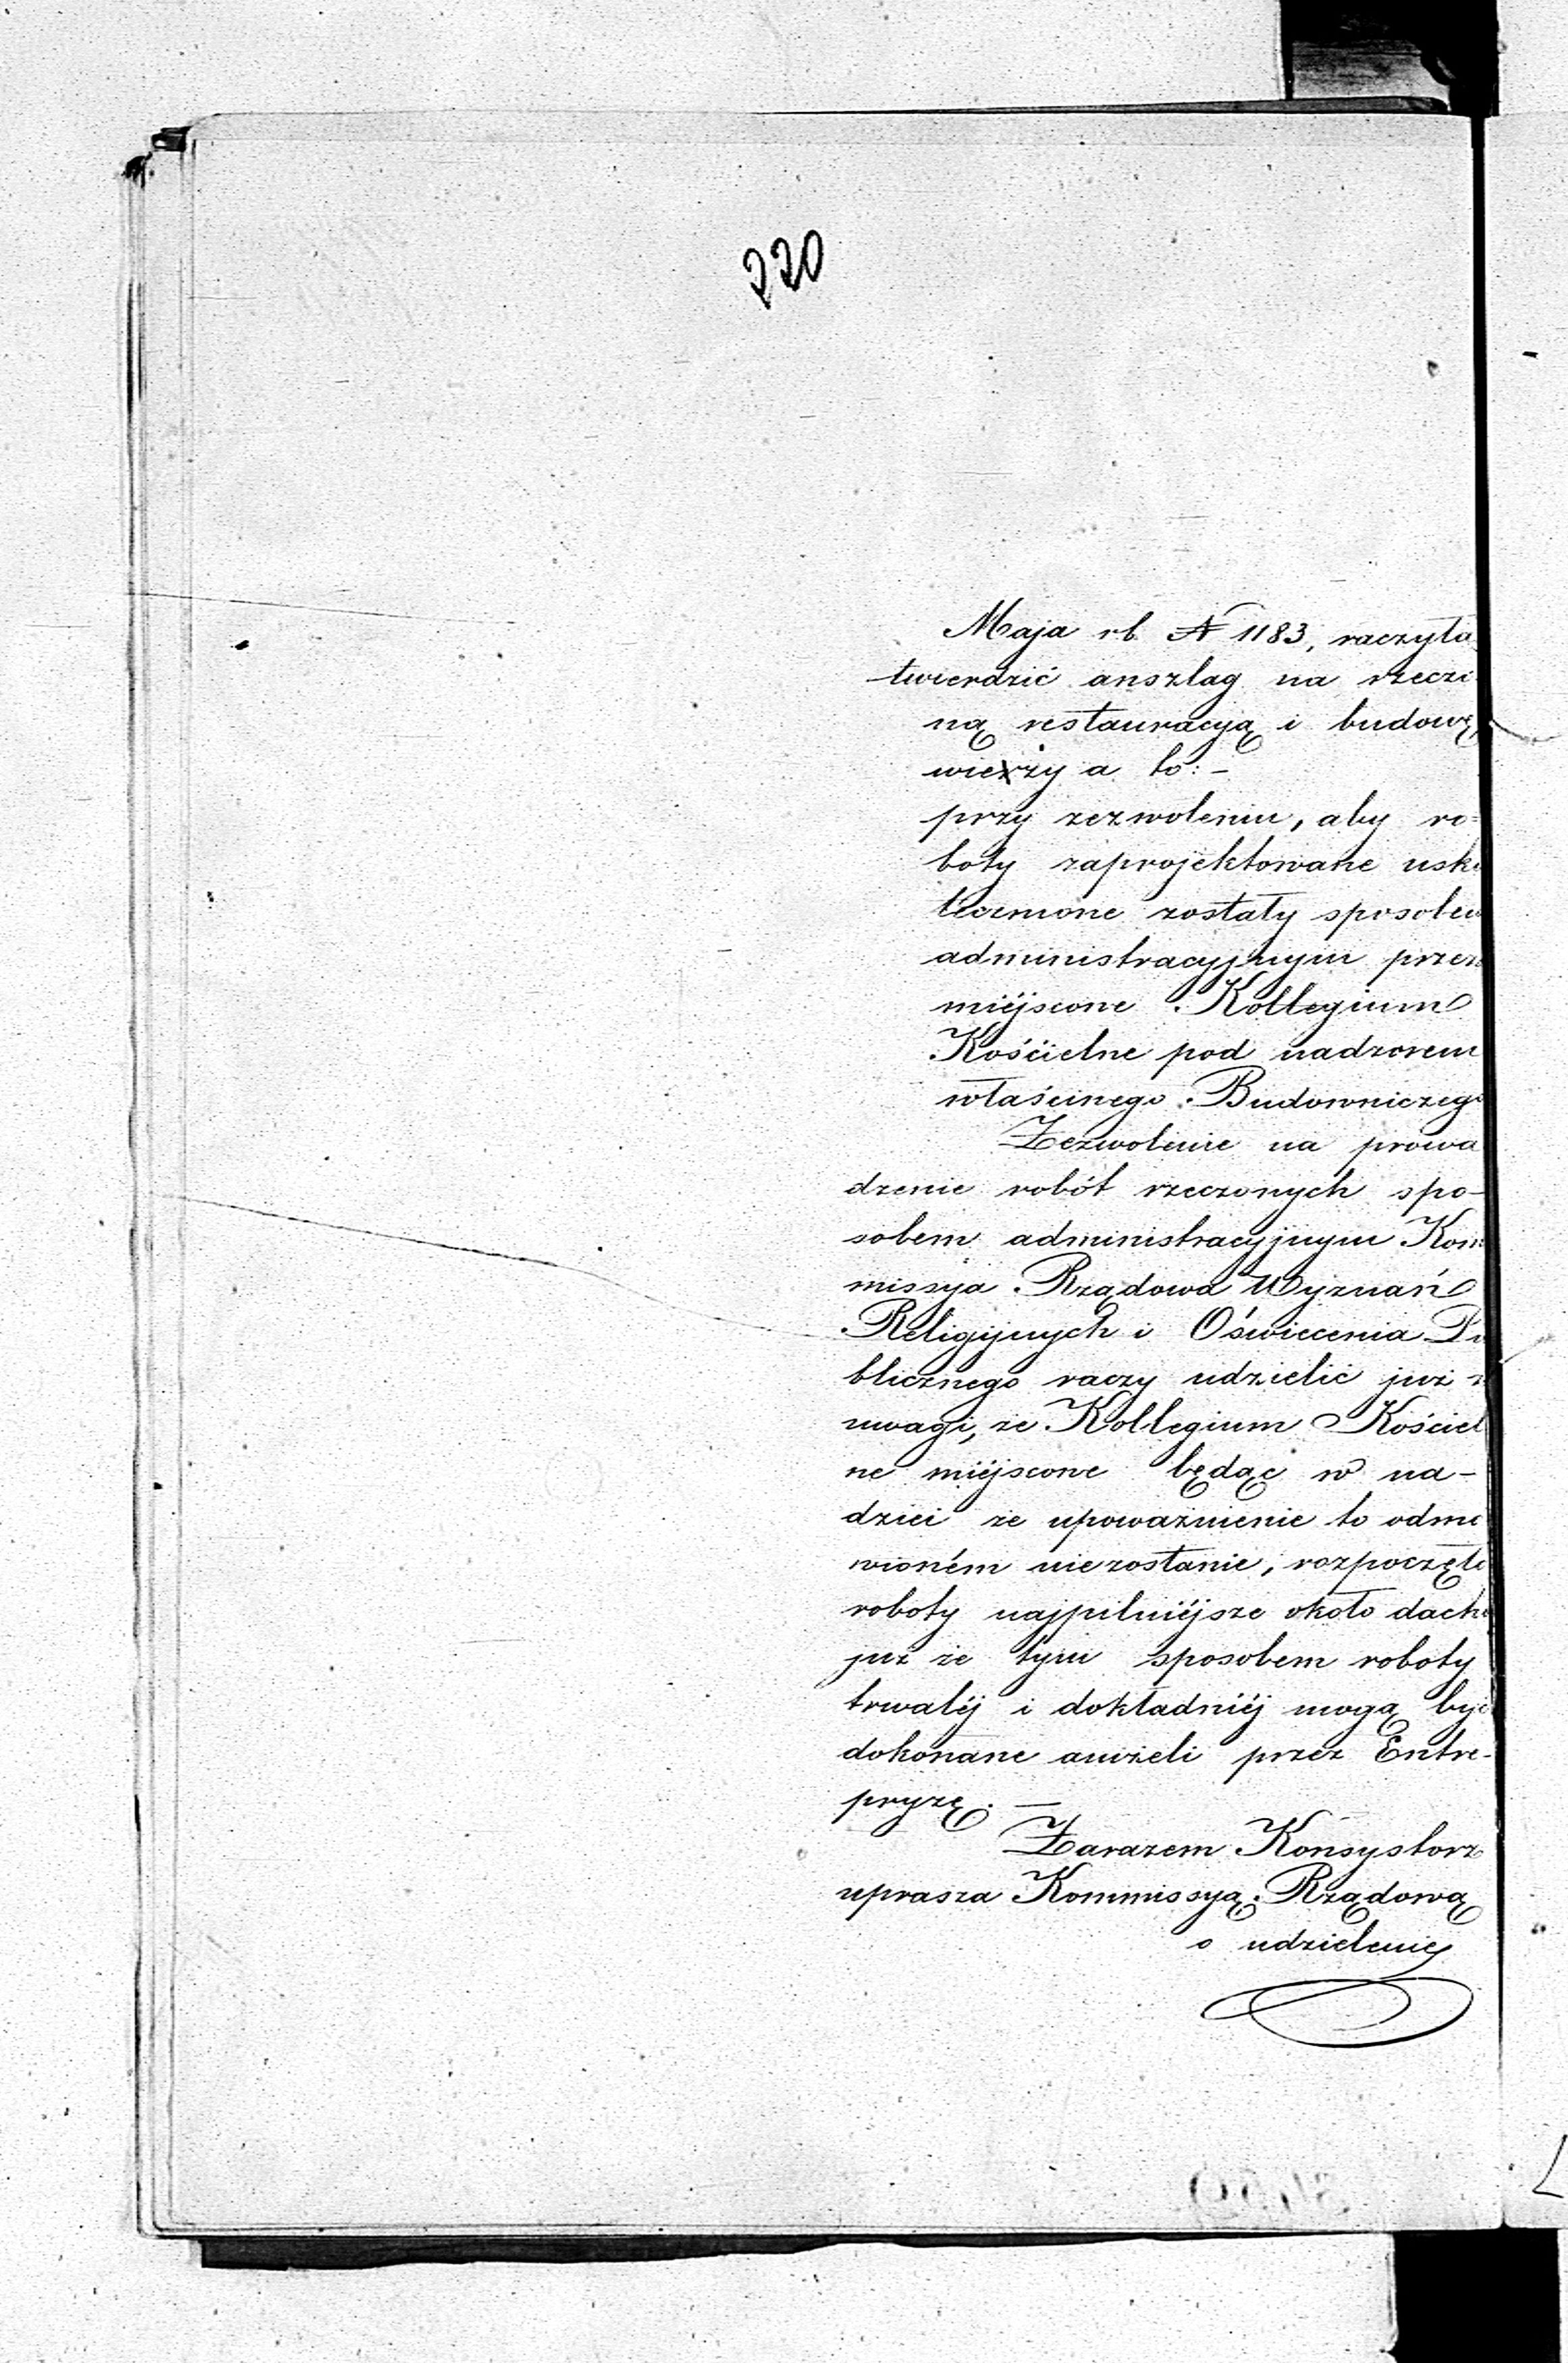 220
Maja rb. N 1183, raczyła
twierdzić anszlag na rzeczo
ną restauracyą i budowę
wieży a to: –
przy zezwoleniu, aby ro=
boty zaprojektowane usku
tecznione zostały sposobem
administracyjnym przez
miéjscowe Kollegium
Kościelne pod nadzorem
właściwego Budowniczego
Zezwolenie na prowa
dzenie robót rzeczonych spo-
sobem administracyjnym Kom
missya Rządowa Wyznań
Religijnych i Oświecenia Pu
blicznego raczy udzielić już z
uwagi, że Kollegium Kościel
ne miéjscowe będąc w na-
dziei że upoważnienie to odmó
wioném niezostanie, rozpoczęło
roboty najpilniéjsze około dachu
już że tym sposobem roboty
trwaléj i dokładniéj mogą być
dokonane aniżeli przez Entre-
pryzę. —
Zarazem Konsystorz
uprasza Kommissyą Rządową
o udzielenie